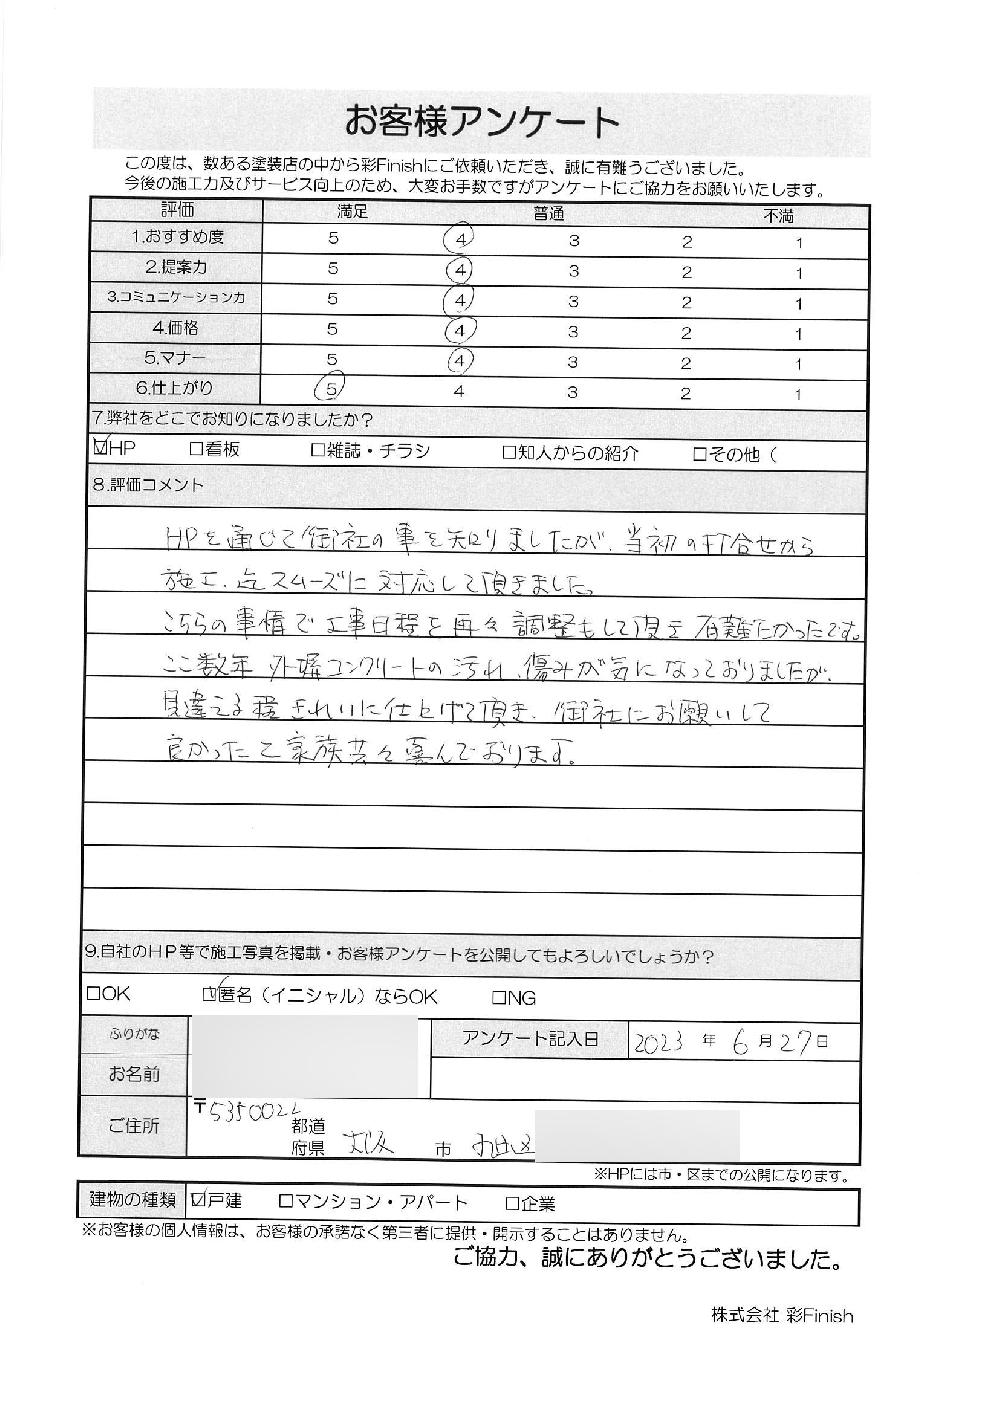 お客様アンケート
この度は、数ある塗装店の中から彩Finishにご依頼いただき、誠に有難うございました。
今後の施工力及びサービス向上のため、大変お手数ですがアンケートにご協力をお願いいたします。
評価 満足 普通 不満
1.おすすめ度 5 4 3 2 1
2.提案力 5 4 3 2 1
3.コミュニケーション力 5 4 3 2 1
4.価格 5 4 3 2 1
5.マナー 5 4 3 2 1
6.仕上がり 5 4 3 2 1
7.弊社をどこでお知りになりましたか？
☑HP □看板 □雑誌・チラシ □知人からの紹介 □その他（
8.評価コメント
HPを通じて御社の事を知りましたが、当初の打合せから
施工迄スムーズに対応して頂きました。
こちらの事情で工事日程を再々調整もして頂き有難たかったです。
ここ数年外塀コンクリートの汚れ、傷みが気になっておりましたが、
見違える程きれいに仕上げて頂き、御社にお願いして
良かったと家族共々喜んでおります。
9.自社のHP等で施工写真を掲載・お客様アンケートを公開してもよろしいでしょうか？
□OK ☑匿名（イニシャル）ならOK □NG
ふりがな アンケート記入日 2023 年 6 月 27 日
お名前
ご住所 〒5350022
都道
府県 大阪 市
※HPには市・区までの公開になります。
建物の種類 ☑戸建 □マンション・アパート □企業
※お客様の個人情報は、お客様の承諾なく第三者に提供・開示することはありません。
ご協力、誠にありがとうございました。
株式会社 彩Finish